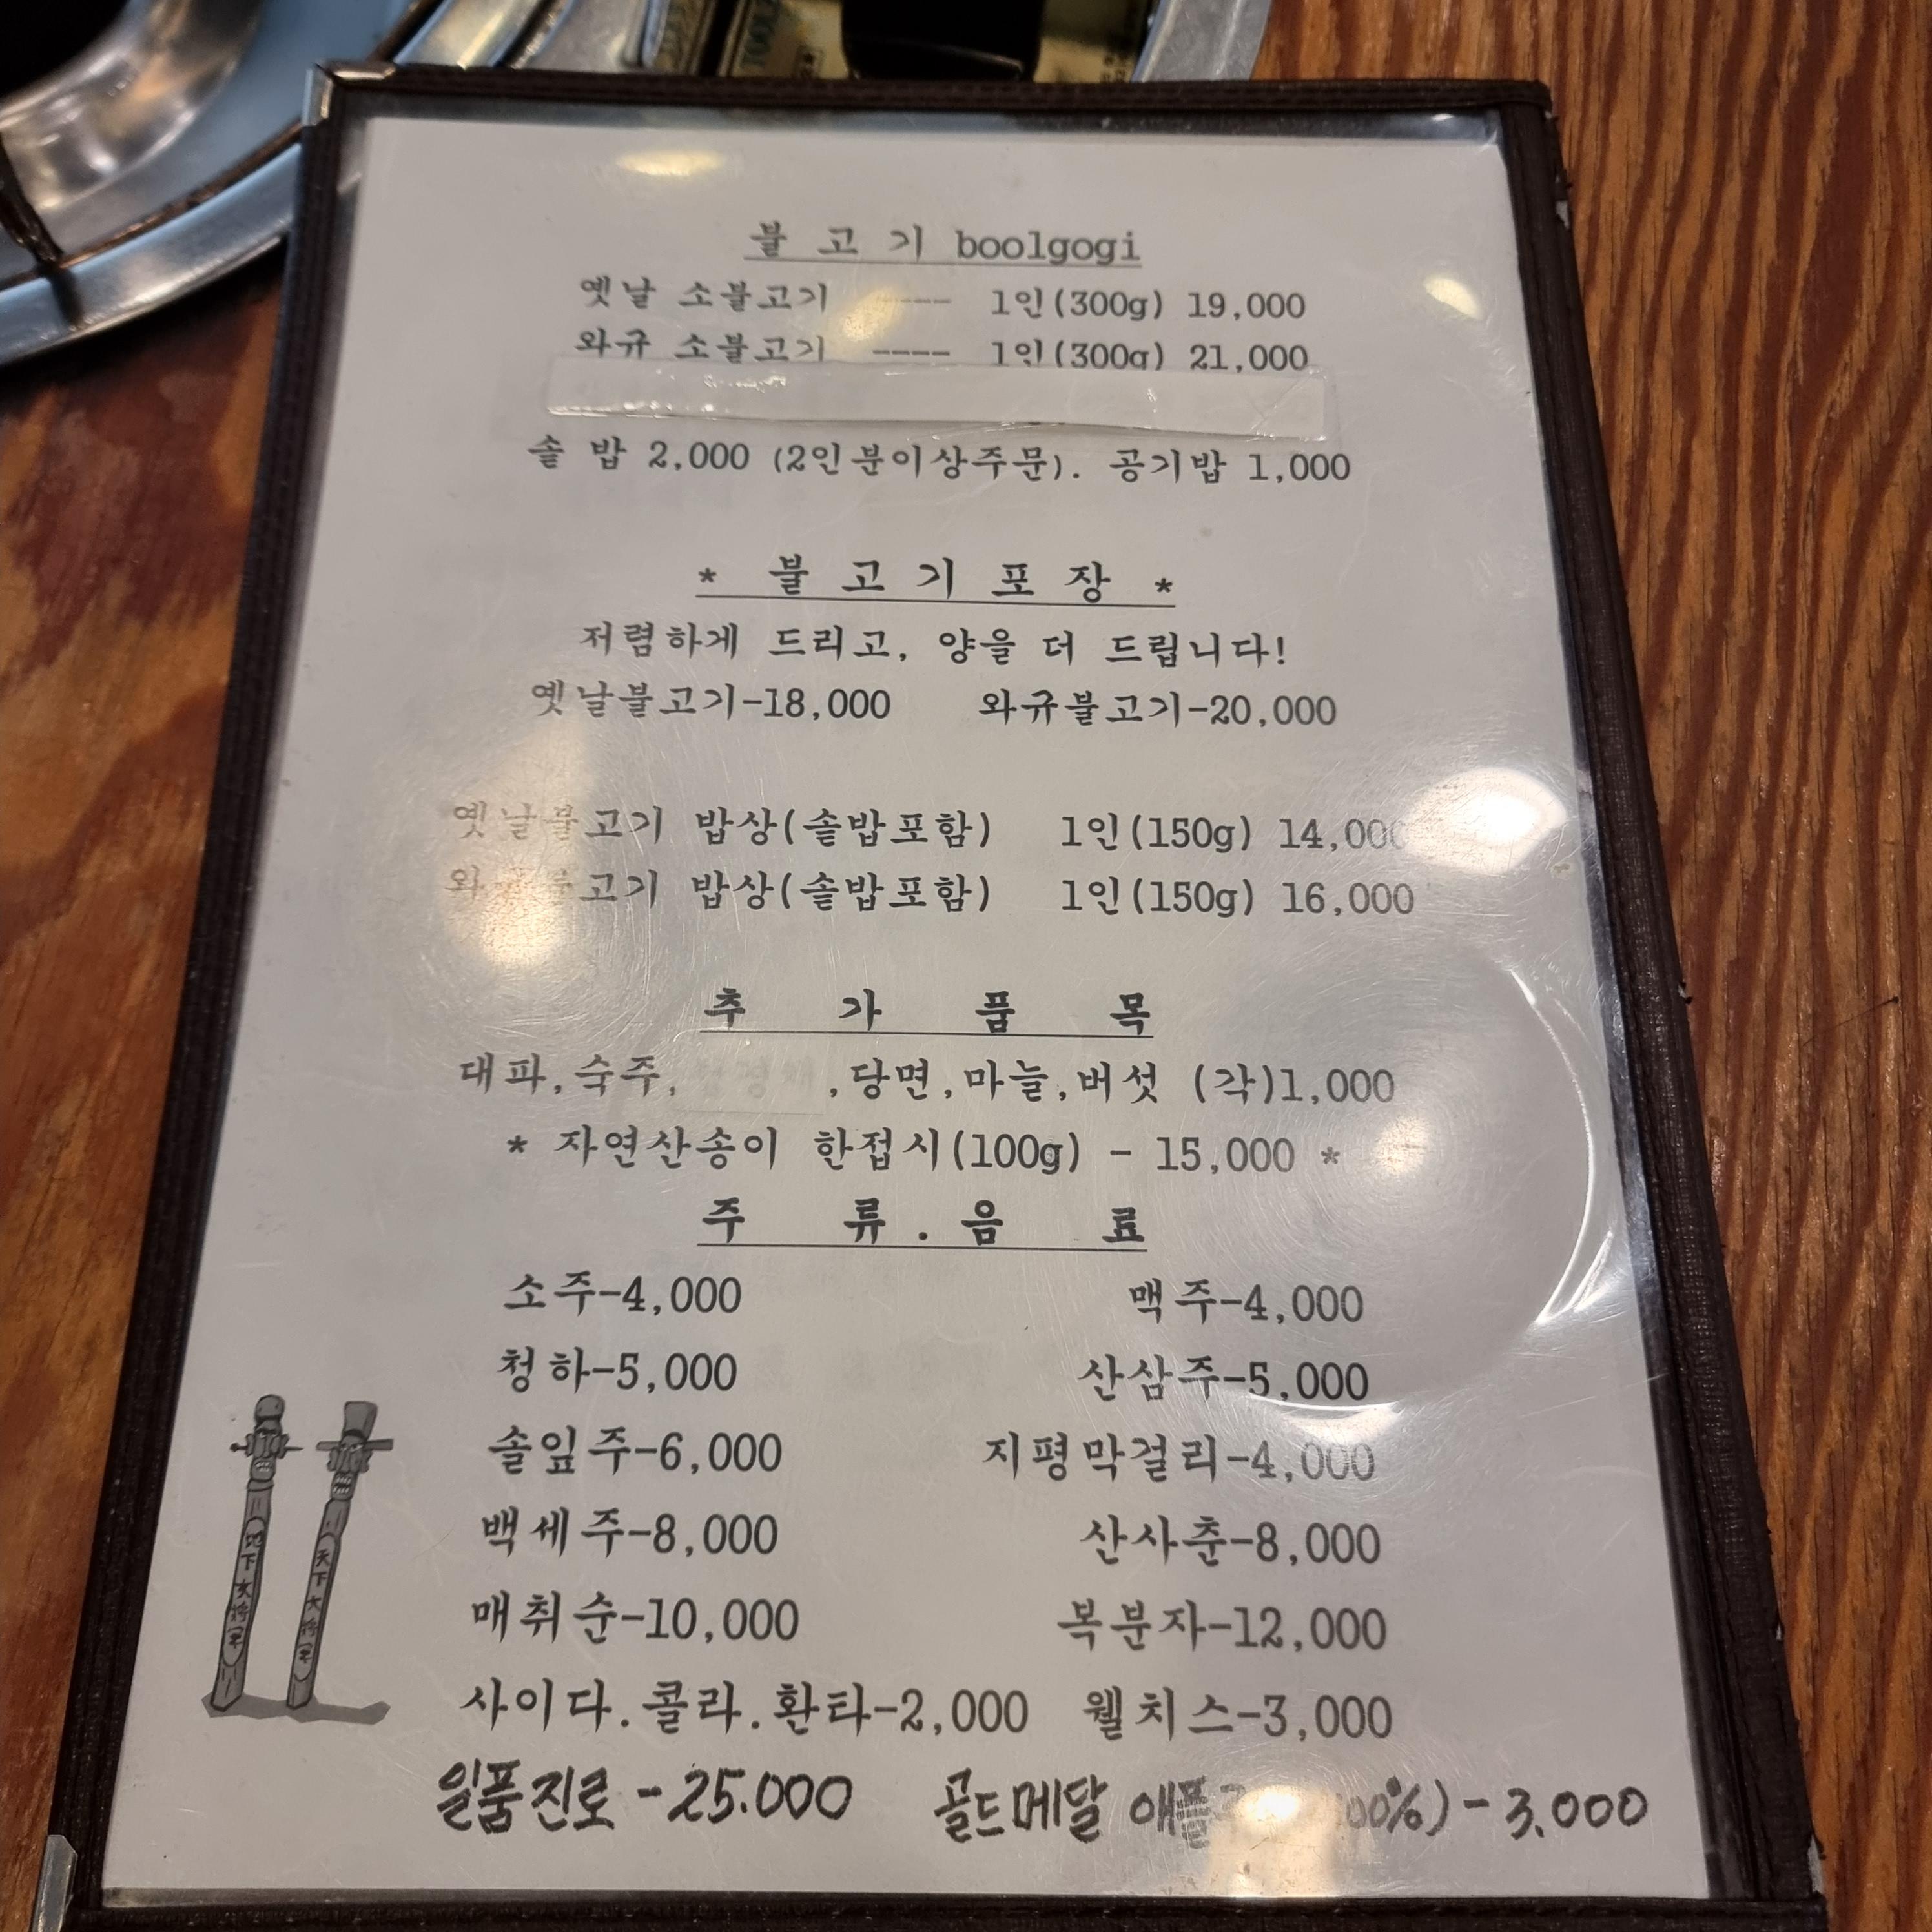 불 고 기 boolgogi
옛날 소불고기 ---- 1인(300g) 19,000
와규 소불고기 ---- 1인(300g) 21,000
솥 밥 2,000 (2인분이상주문). 공기밥 1,000
* 불 고 기 포 장 *
저렴하게 드리고, 양을 더 드립니다!
옛날불고기-18,000 와규불고기-20,000
옛날불고기 밥상(솥밥포함) 1인(150g) 14,000
와규불고기 밥상(솥밥포함) 1인(150g) 16,000
추 가 품 목
대파,숙주, ,당면,마늘,버섯 (각)1,000
* 자연산송이 한접시(100g) - 15,000 *
주 류 . 음 료
소주-4,000 맥주-4,000
청하-5,000 산삼주-5,000
솔잎주-6,000 지평막걸리-4,000
백세주-8,000 산사춘-8,000
매취순-10,000 복분자-12,000
地下女將軍 天下大將軍
사이다.콜라.환타-2,000 웰치스-3,000
일품진로 - 25.000 골드메달 - 3.000